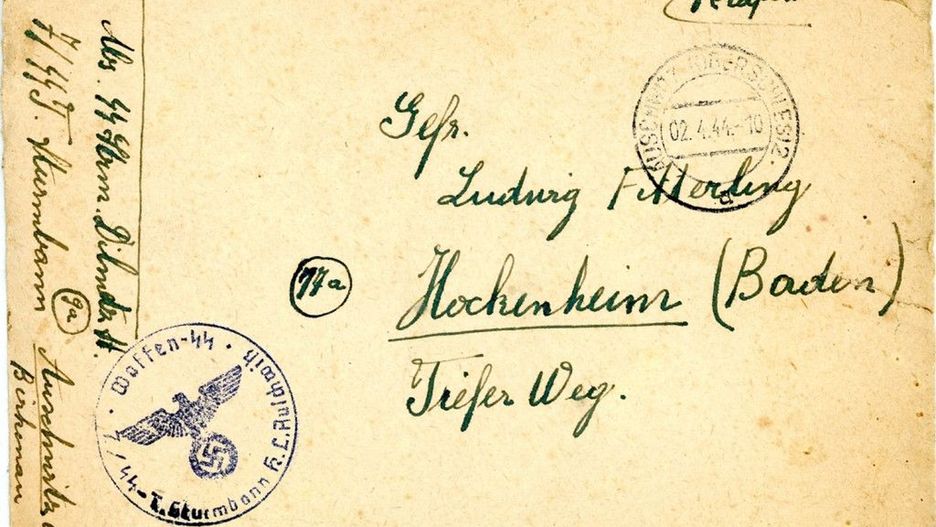 Gefr.
Ludwig Fitterling
17a
Hockenheim (Baden)
Tiefer Weg.
AUSCHWITZ (OBERSCHLES) 2
02.4.44.-10
Abs. SS Strm. H.
7/SS T. Sturmbann 9a Auschwitz
Birkenau
Waffen-SS
7/SS-T. Sturmbann K.L. Auschwitz